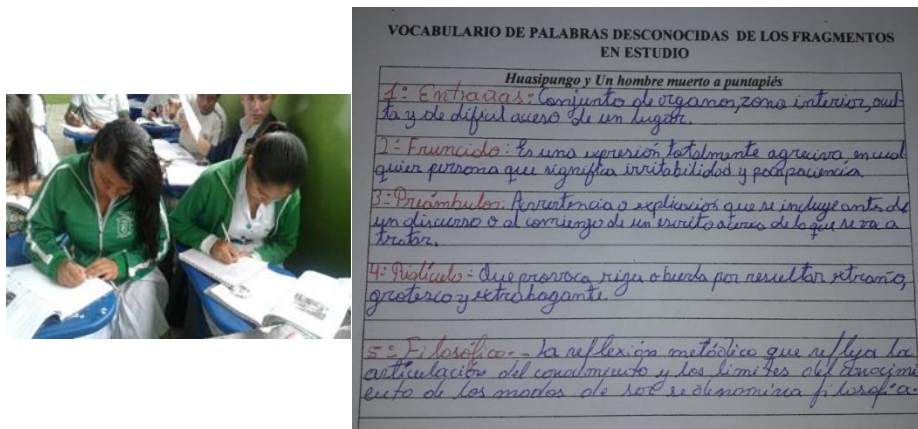 VOCABULARIO DE PALABRAS DESCONOCIDAS DE LOS FRAGMENTOS
EN ESTUDIO
Huasipungo y Un hombre muerto a puntapiés
1: Entrañas: Conjunto de organos, zona interior, ocul-
ta y de dificil acceso de un lugar.
2: Fruncido: Es una expresión totalmente agreciva en cual
quier persona que significa irritabilidad y poca paciencia.
3: Preámbulo: Advertencia o explicación que se incluye antes de
un discurso o al comienzo de un escrito acerca de lo que se va a
tratar.
4: Ridículo: Que provoca riza o burla por resultar extraño,
grotezco y extrabagante.
5: Filosófico.- La reflexión metódica que refleja la
articulación del conocimiento y los limites del conocimi
ento de los modos de ser se denomina filosofia.